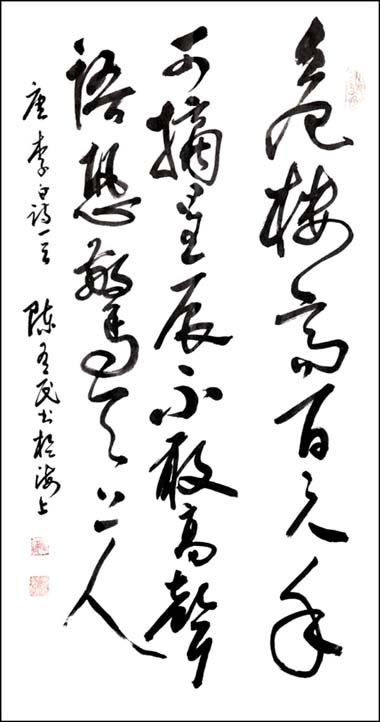 危樓高百尺手
可摘星辰不敢高聲
語恐驚天上人
唐李白詩一首 陳民書於海上